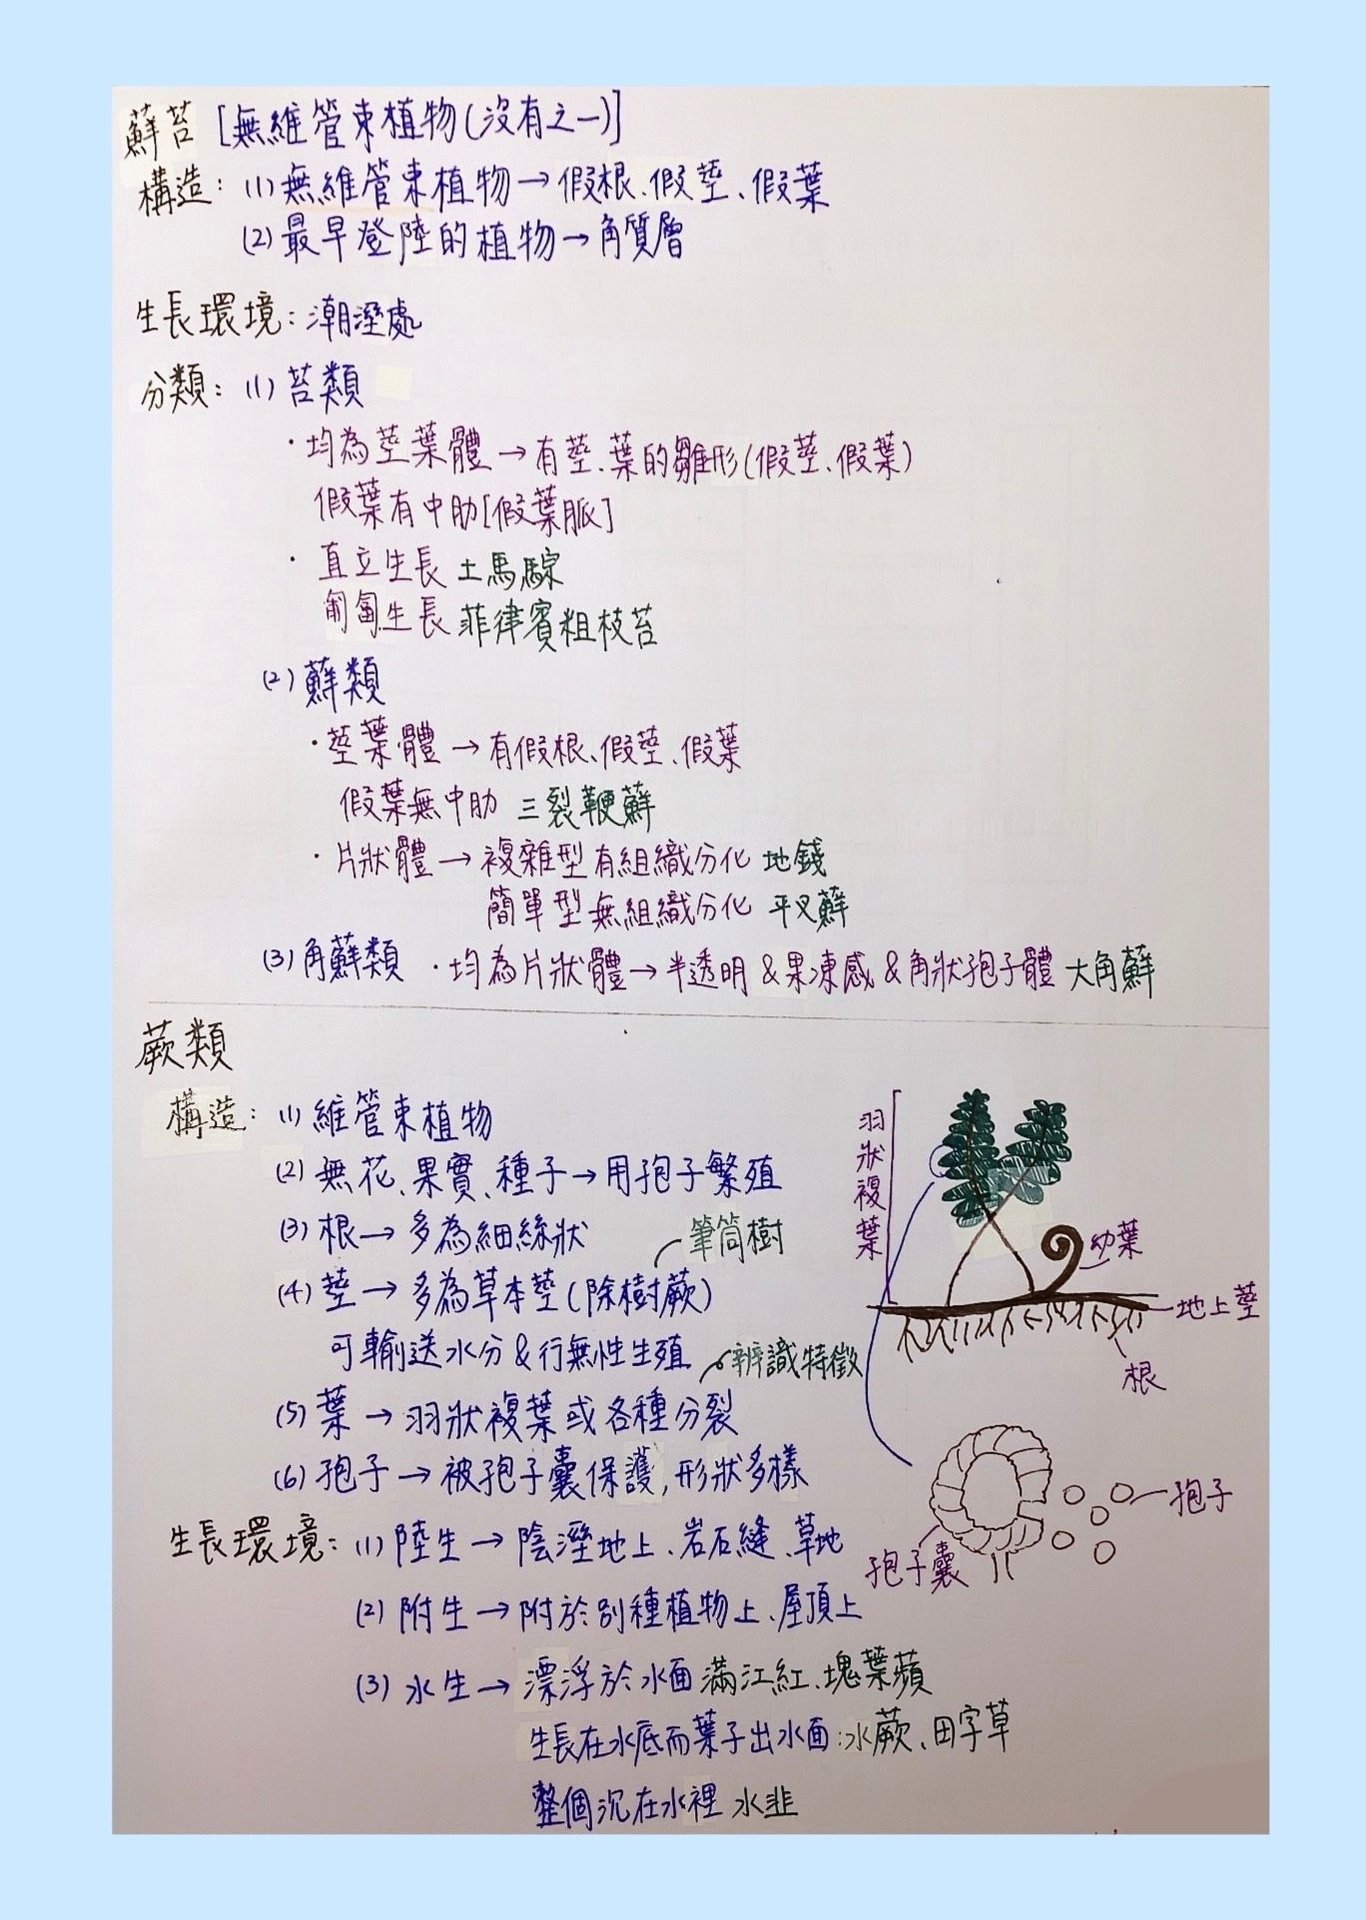 蘚苔 [無維管束植物(沒有之一)]
構造：(1) 無維管束植物→假根、假莖、假葉
(2) 最早登陸的植物→角質層
生長環境：潮溼處
分類：(1) 苔類
·均為莖葉體→有莖、葉的雛形(假莖、假葉)
假葉有中肋[假葉脈]
·直立生長 土馬騌
匍匐生長 菲律賓粗枝苔
(2) 蘚類
·莖葉體→有假根、假莖、假葉
假葉無中肋 三裂鞭蘚
·片狀體→複雜型有組織分化 地錢
簡單型無組織分化 平叉蘚
(3) 角蘚類 ·均為片狀體→半透明&果凍感&角狀孢子體 大角蘚
蕨類
構造：(1) 維管束植物
(2) 無花、果實、種子→用孢子繁殖
(3) 根→多為細絲狀
筆筒樹
(4) 莖→多為草本莖(除樹蕨)
可輸送水分&行無性生殖
辨識特徵
(5) 葉→羽狀複葉或各種分裂
(6) 孢子→被孢子囊保護,形狀多樣
羽狀複葉
幼葉
地上莖
根
孢子
孢子囊
生長環境：(1) 陸生→陰溼地上、岩石縫、草地
(2) 附生→附於別種植物上、屋頂上
(3) 水生→漂浮於水面 滿江紅、塊葉蘋
生長在水底而葉子出水面：水蕨、田字草
整個沉在水裡 水韭